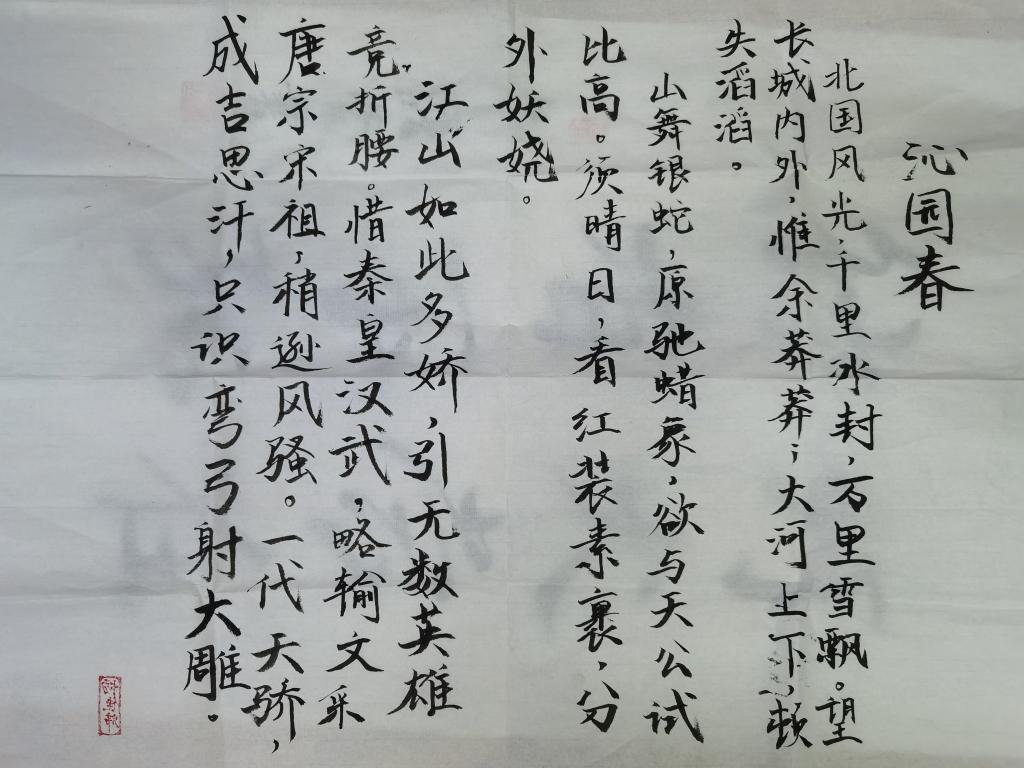 沁园春
北国风光，千里冰封，万里雪飘。望
长城内外，惟余莽莽；大河上下，顿
失滔滔。
山舞银蛇，原驰蜡象，欲与天公试
比高。须晴日，看红装素裹，分
外妖娆。
江山如此多娇，引无数英雄
竞折腰。惜秦皇汉武，略输文采
唐宗宋祖，稍逊风骚。一代天骄，
成吉思汗，只识弯弓射大雕。